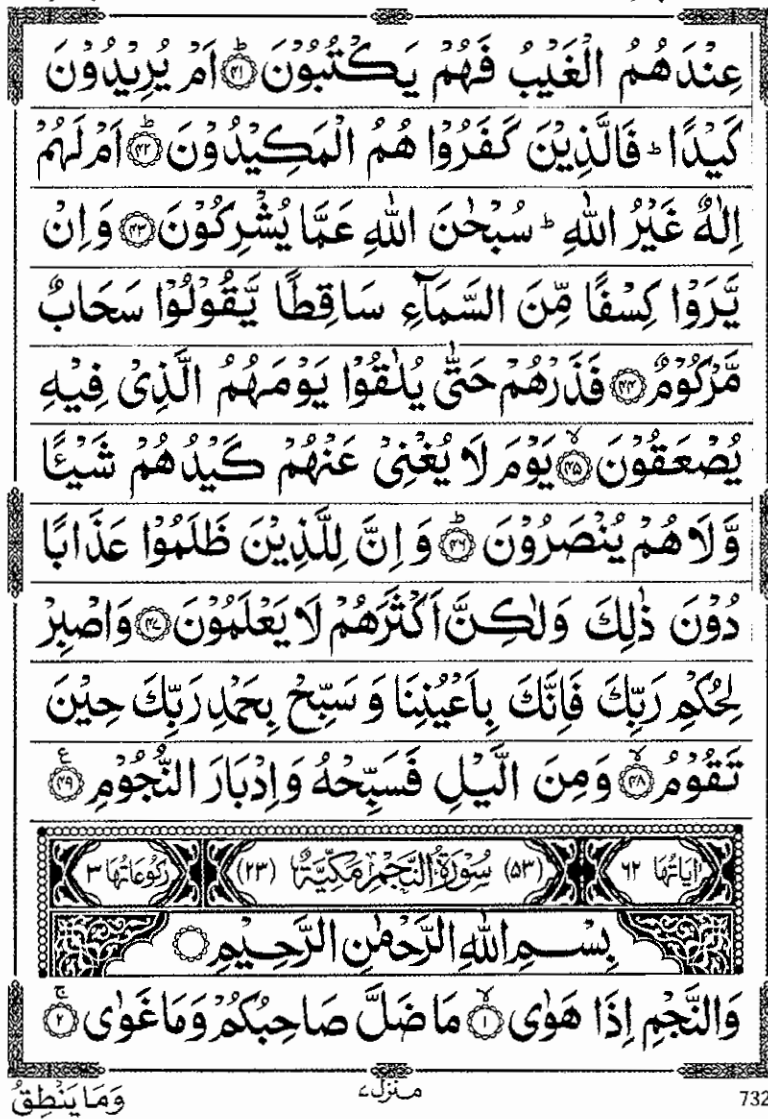 عِنْدَهُمُ الْغَيْبُ فَهُمْ يَكْتُبُوْنَ ؕ‏﴿۴۱﴾ اَمْ يُرِيْدُوْنَ
كَيْدًا ؕ فَالَّذِيْنَ كَفَرُوْا هُمُ الْمَكِيْدُوْنَ ؕ‏﴿۴۲﴾ اَمْ لَهُمْ
اِلٰهٌ غَيْرُ اللّٰهِ ؕ سُبْحٰنَ اللّٰهِ عَمَّا يُشْرِكُوْنَ ﴿۴۳﴾ وَاِنْ
يَّرَوْا كِسْفًا مِّنَ السَّمَآءِ سَاقِطًا يَّقُوْلُوْا سَحَابٌ
مَّرْكُوْمٌ ﴿۴۴﴾ فَذَرْهُمْ حَتّٰى يُلٰقُوْا يَوْمَهُمُ الَّذِىْ فِيْهِ
يُصْعَقُوْنَ ۙ‏﴿۴۵﴾ يَوْمَ لَا يُغْنِىْ عَنْهُمْ كَيْدُهُمْ شَيْـًٔا
وَّلَا هُمْ يُنْصَرُوْنَ ؕ‏﴿۴۶﴾ وَاِنَّ لِلَّذِيْنَ ظَلَمُوْا عَذَابًا
دُوْنَ ذٰلِكَ وَلٰكِنَّ اَكْثَرَهُمْ لَا يَعْلَمُوْنَ ﴿۴۷﴾ وَاصْبِرْ
لِحُكْمِ رَبِّكَ فَاِنَّكَ بِاَعْيُنِنَا وَسَبِّحْ بِحَمْدِ رَبِّكَ حِيْنَ
تَقُوْمُ ۙ‏﴿۴۸﴾ وَمِنَ الَّيْلِ فَسَبِّحْهُ وَاِدْبَارَ النُّجُوْمِ ﴿۴۹﴾ ع
اٰيَاتُهَا ۶۲ (۵۳) سُوْرَةُ النَّجْمِ مَكِّيَّةٌ (۲۳) رُكُوْعَاتُهَا ۳
بِسْمِ اللّٰهِ الرَّحْمٰنِ الرَّحِيْمِ
وَالنَّجْمِ اِذَا هَوٰى ۙ‏﴿۱﴾ مَا ضَلَّ صَاحِبُكُمْ وَمَا غَوٰى ۚ‏﴿۲﴾
وَمَا يَنْطِقُ
منزل ۷
732